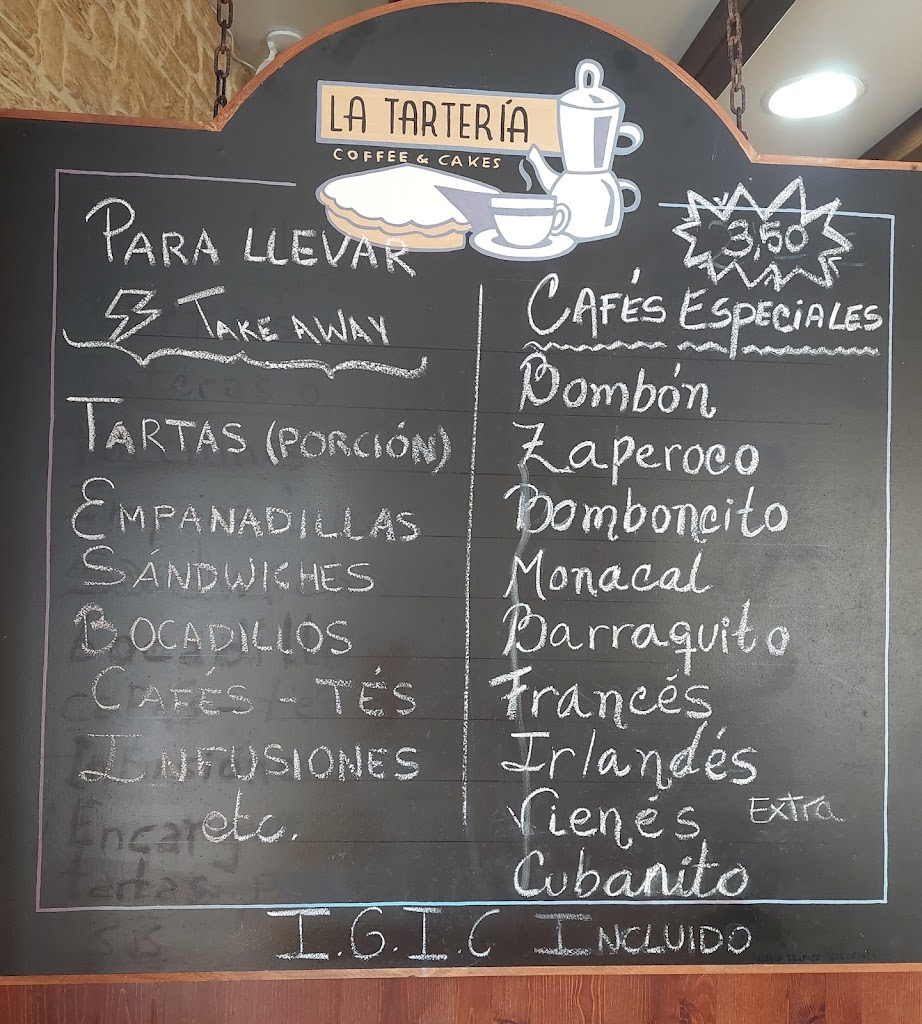 LA TARTERÍA
COFFEE & CAKES
PARA LLEVAR
TAKE AWAY
TARTAS (PORCIÓN)
EMPANADILLAS
SÁNDWICHES
BOCADILLOS
CAFÉS - TÉS
INFUSIONES
etc.
3,50
CAFÉS ESPECIALES
Bombón
Zaperoco
Bomboncito
Monacal
Barraquito
Francés
Irlandés
Vienés EXTRA
Cubanito
I.G.I.C INCLUIDO